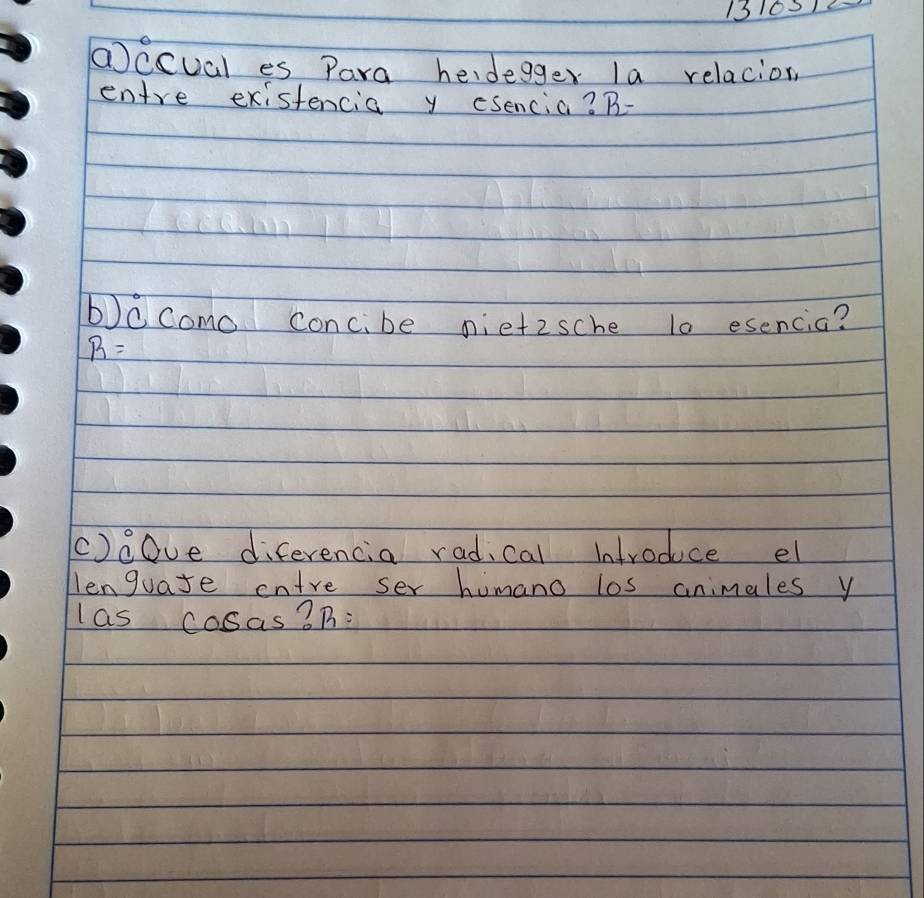 a) ¿cual es Para heidegger la relacion
entre existencia y esencia? R=
b) ¿Como concibe nietzsche la esencia?
R=
c) ¿Que diferencia radical introduce el
lenguaje entre ser humano los animales y
las cosas? R: